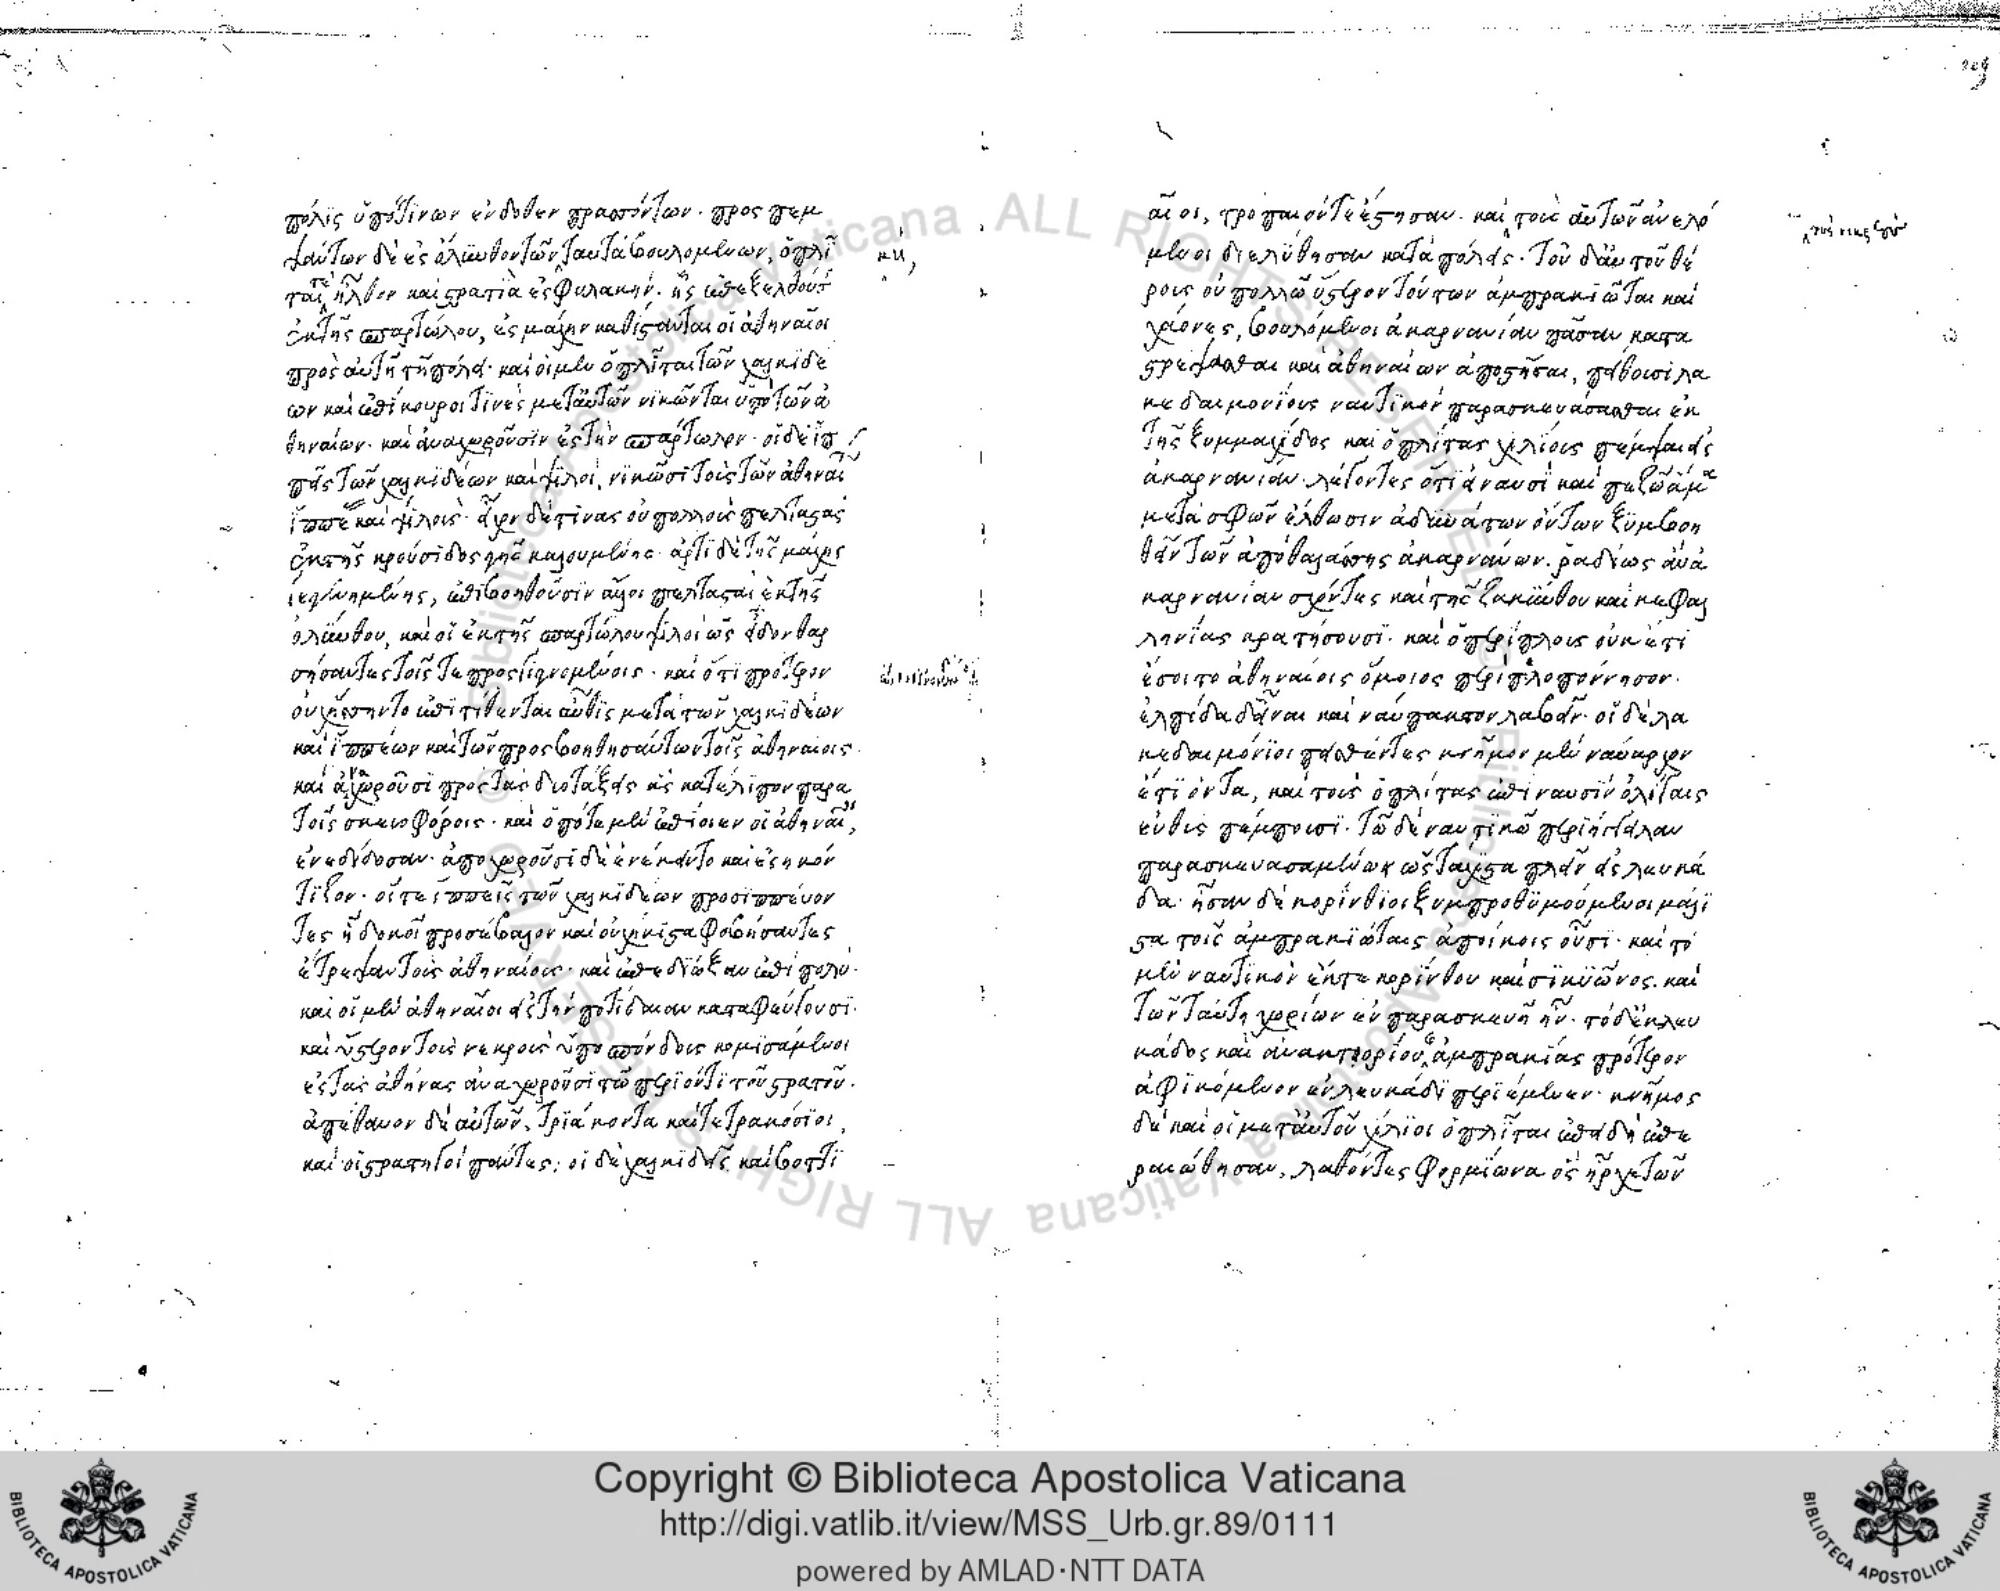 πόλις ὑπό τινων ἔνδοθεν πρασσόντων· προσπεμ
ψάντων δὲ ἐς ὄλυνθον τῶν ταυτὰ βουλομένων, ὁπλῖ
ται τὲ ἦλθον καὶ στρατιὰ ἐς φυλακήν· ἧς ἐπεξελθούσ
ἐκ τῆς σπαρτώλου, ἐς μάχην καθίστανται οἱ ἀθηναῖοι
πρὸς αὐτῆ τῆ πόλει· καὶ οἱ μὲν ὁπλῖται τῶν χαλκιδέ
ων καὶ ἐπίκουροί τινες μετ' αὐτῶν νικῶνται ὑπὸ τῶν ἀ
θηναίων· καὶ ἀναχωροῦσιν ἐς τὴν σπάρτωλον· οἱ δὲ ἱπ
πῆς τῶν χαλκιδέων καὶ ψιλοί, νικῶσι τοὺς τῶν ἀθηναί
ἱππέας καὶ ψιλούς· εἶχον δέ τινας οὐ πολλοὺς πελταστὰς
ἐκ τῆς κρούσιδος γῆς καλουμένης· ἄρτι δὲ τῆς μάχης
γεγενημένης, ἐπιβοηθοῦσιν ἄλλοι πελτασταὶ ἐκ τῆς
ὀλύνθου, καὶ οἱ ἐκ τῆς σπαρτώλου ψιλοὶ ὡς εἶδον θαρ
σήσαντες τοῖς τε προσγιγνομένοις· καὶ ὅτι πρότερον
οὐχ ἥσσηντο ἐπιτίθενται αὖθις μετὰ τῶν χαλκιδέων
καὶ ἱππέων καὶ τῶν προσβοηθησάντων τοῖς ἀθηναίοις·
καὶ ἀναχωροῦσι πρὸς τὰς δύο τάξεις ἃς κατέλιπον παρὰ
τοῖς σκευοφόροις· καὶ ὁπότε μὲν ἐπίοιεν οἱ ἀθηναῖοι,
ἐνεδίδοσαν· ἀποχωροῦσι δὲ ἐνέκειντο καὶ ἐσηκόν
τιζον· οἵ τε ἱππεῖς τῶν χαλκιδέων προσιππεύον
τες ἧ δοκοῖ προσέβαλον καὶ οὐχ ἥκιστα φοβήσαντες
ἔτρεψαν τοὺς ἀθηναίους· καὶ ἐπεδίωξαν ἐπὶ πολύ·
καὶ οἱ μὲν ἀθηναῖοι ἐς τὴν ποτίδαιαν καταφεύγουσι·
καὶ ὕστερον τοὺς νεκροὺς ὑποσπόνδους κομισάμενοι
ἐς τὰς ἀθήνας ἀναχωροῦσι τῶ περιόντι τοῦ στρατοῦ·
ἀπέθανον δὲ αὐτῶν, τριάκοντα καὶ τετρακόσιοι,
καὶ οἱ στρατηγοὶ πάντες· οἱ δὲ χαλκιδεῖς καὶ βοττι
αῖοι, τροπαιόν τε ἔστησαν· καὶ τοὺς αὑτῶν ἀνελό
μενοι διελύθησαν κατὰ πόλεις· τοῦ δ' αὐτοῦ θέ
ρους οὐ πολλῶ ὕστερον τούτων ἀμπρακιῶται καὶ
χάονες, βουλόμενοι ἀκαρνανίαν πᾶσαν κατα
στρέψασθαι καὶ ἀθηναίων ἀποστῆσαι, πείθουσι λα
κεδαιμονίους ναυτικὸν παρασκευάσασθαι ἐκ
τῆς ξυμμαχίδος καὶ ὁπλίτας χιλίους πέμψαι ἐς
ἀκαρνανίαν· λέγοντες ὅτι ἢν ναυσὶ καὶ πεζῶ ἅμα
μετὰ σφῶν ἔλθωσιν ἀδυνάτων ὄντων ξυμβοη
θεῖν τῶν ἀπὸ θαλάσσης ἀκαρνάνων· ῥαδίως ἂν ἀ
καρνανίαν σχόντες καὶ τῆς ζακύνθου καὶ κεφαλ
ληνίας κρατήσουσι· καὶ ὁ περίπλους οὐκέτι
ἔσοιτο ἀθηναίοις ὅμοιος περὶ πελοπόννησον·
ἐλπίδα δ' εἶναι καὶ ναύπακτον λαβεῖν· οἱ δὲ λα
κεδαιμόνιοι πεισθέντες κνῆμον μὲν ναύαρχον
ἔτι ὄντα, καὶ τοὺς ὁπλίτας ἐπὶ ναυσὶν ὀλίγαις
εὐθὺς πέμπουσι· τῶ δὲ ναυτικῶ περιήγγειλαν
παρασκευασαμένω ὡς τάχιστα πλεῖν ἐς λευκά
δα· ἦσαν δὲ κορίνθιοι ξυμπροθυμούμενοι μάλι
στα τοῖς ἀμπρακιώταις ἀποίκοις οὖσι· καὶ τὸ
μὲν ναυτικὸν ἔκ τε κορίνθου καὶ σικυῶνος· καὶ
τῶν ταύτη χωρίων ἐν παρασκευῆ ἦν· τὸ δ' ἐκ λευ
κάδος καὶ ἀνακτορίου καὶ ἀμπρακίας πρότερον
ἀφικόμενον ἐν λευκάδι περιέμενεν· κνῆμος
δὲ καὶ οἱ μετ' αὐτοῦ χίλιοι ὁπλῖται ἐπειδὴ ἐπε
ραιώθησαν, λαθόντες φορμίωνα ὃς ἦρχε τῶν
Copyright © Biblioteca Apostolica Vaticana
http://digi.vatlib.it/view/MSS_Urb.gr.89/0111
powered by AMLAD·NTT DATA
BIBLIOTECA APOSTOLICA VATICANA
BIBLIOTECA APOSTOLICA VATICANA